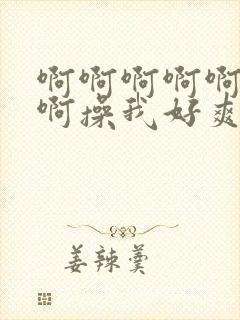 啊啊啊啊啊
啊操我好爽
姜辣羹